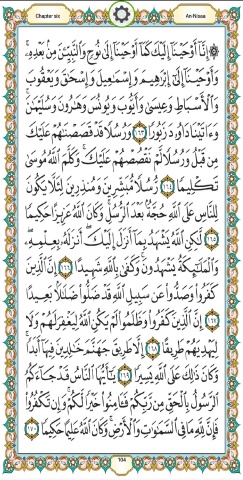 Chapter six An-Nisaa
۞ إِنَّآ أَوْحَيْنَآ إِلَيْكَ كَمَآ أَوْحَيْنَآ إِلَىٰ نُوحٍ وَٱلنَّبِيِّـۧنَ مِنۢ بَعْدِهِۦۚ
وَأَوْحَيْنَآ إِلَىٰٓ إِبْرَٰهِيمَ وَإِسْمَـٰعِيلَ وَإِسْحَـٰقَ وَيَعْقُوبَ
وَٱلْأَسْبَاطِ وَعِيسَىٰ وَأَيُّوبَ وَيُونُسَ وَهَـٰرُونَ وَسُلَيْمَـٰنَۚ
وَءَاتَيْنَا دَاوُۥدَ زَبُورًا ١٦٣ وَرُسُلًا قَدْ قَصَصْنَـٰهُمْ عَلَيْكَ
مِن قَبْلُ وَرُسُلًا لَّمْ نَقْصُصْهُمْ عَلَيْكَۚ وَكَلَّمَ ٱللَّهُ مُوسَىٰ
تَكْلِيمًا ١٦٤ رُّسُلًا مُّبَشِّرِينَ وَمُنذِرِينَ لِئَلَّا يَكُونَ
لِلنَّاسِ عَلَى ٱللَّهِ حُجَّةٌۢ بَعْدَ ٱلرُّسُلِۚ وَكَانَ ٱللَّهُ عَزِيزًا حَكِيمًا
١٦٥ لَّـٰكِنِ ٱللَّهُ يَشْهَدُ بِمَآ أَنزَلَ إِلَيْكَۖ أَنزَلَهُۥ بِعِلْمِهِۦۖ
وَٱلْمَلَـٰٓئِكَةُ يَشْهَدُونَۚ وَكَفَىٰ بِٱللَّهِ شَهِيدًا ١٦٦ إِنَّ ٱلَّذِينَ
كَفَرُوا۟ وَصَدُّوا۟ عَن سَبِيلِ ٱللَّهِ قَدْ ضَلُّوا۟ ضَلَـٰلًۢا بَعِيدًا
١٦٧ إِنَّ ٱلَّذِينَ كَفَرُوا۟ وَظَلَمُوا۟ لَمْ يَكُنِ ٱللَّهُ لِيَغْفِرَ لَهُمْ وَلَا
لِيَهْدِيَهُمْ طَرِيقًا ١٦٨ إِلَّا طَرِيقَ جَهَنَّمَ خَـٰلِدِينَ فِيهَآ أَبَدًاۚ
وَكَانَ ذَٰلِكَ عَلَى ٱللَّهِ يَسِيرًا ١٦٩ يَـٰٓأَيُّهَا ٱلنَّاسُ قَدْ جَآءَكُمُ
ٱلرَّسُولُ بِٱلْحَقِّ مِن رَّبِّكُمْ فَـَٔامِنُوا۟ خَيْرًا لَّكُمْۚ وَإِن تَكْفُرُوا۟
فَإِنَّ لِلَّهِ مَا فِى ٱلسَّمَـٰوَٰتِ وَٱلْأَرْضِۚ وَكَانَ ٱللَّهُ عَلِيمًا حَكِيمًا ١٧٠
104